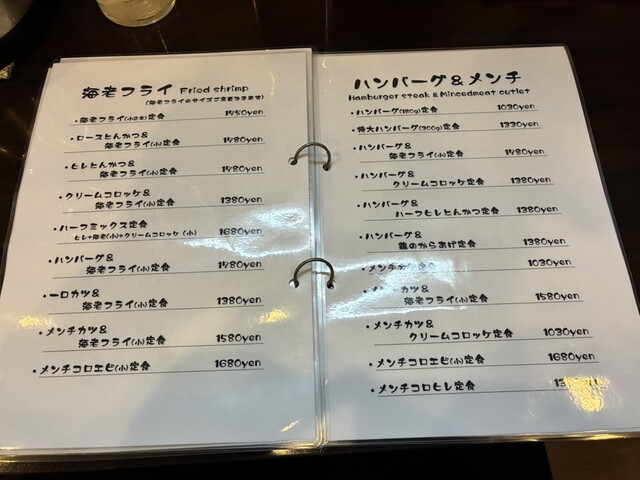 海老フライ Fried shrimp
(海老フライのサイズご変更できます)
・海老フライ(小2本)定食 1450yen
・ロースとんかつ&
海老フライ(小)定食 1480yen
・ヒレとんかつ&
海老フライ(小)定食 1480yen
・クリームコロッケ&
海老フライ(小)定食 1380yen
・ハーフミックス定食 1680yen
ヒレ+海老(小)+クリームコロッケ (小)
・ハンバーグ&
海老フライ(小)定食 1480yen
・一口カツ&
海老フライ(小)定食 1380yen
・メンチカツ&
海老フライ(小)定食 1580yen
・メンチコロエビ(小)定食 1680yen
ハンバーグ&メンチ
Hamburger steak & Mincedmeat cutlet
・ハンバーグ(180g)定食 1030yen
・特大ハンバーグ(300g)定食 1330yen
・ハンバーグ&
海老フライ(小)定食 1480yen
・ハンバーグ&
クリームコロッケ定食 1380yen
・ハンバーグ&
ハーフヒレとんかつ定食 1380yen
・ハンバーグ&
鶏のからあげ定食 1380yen
・メンチカツ定食 1030yen
カツ&
海老フライ(小)定食 1580yen
・メンチカツ&
クリームコロッケ定食 1030yen
・メンチコロエビ(小)定食 1680yen
・メンチコロヒレ定食